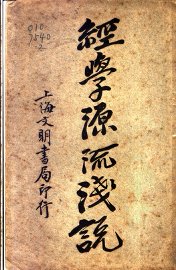 經學源流淺說
上海文明書局印行
010
7540
2